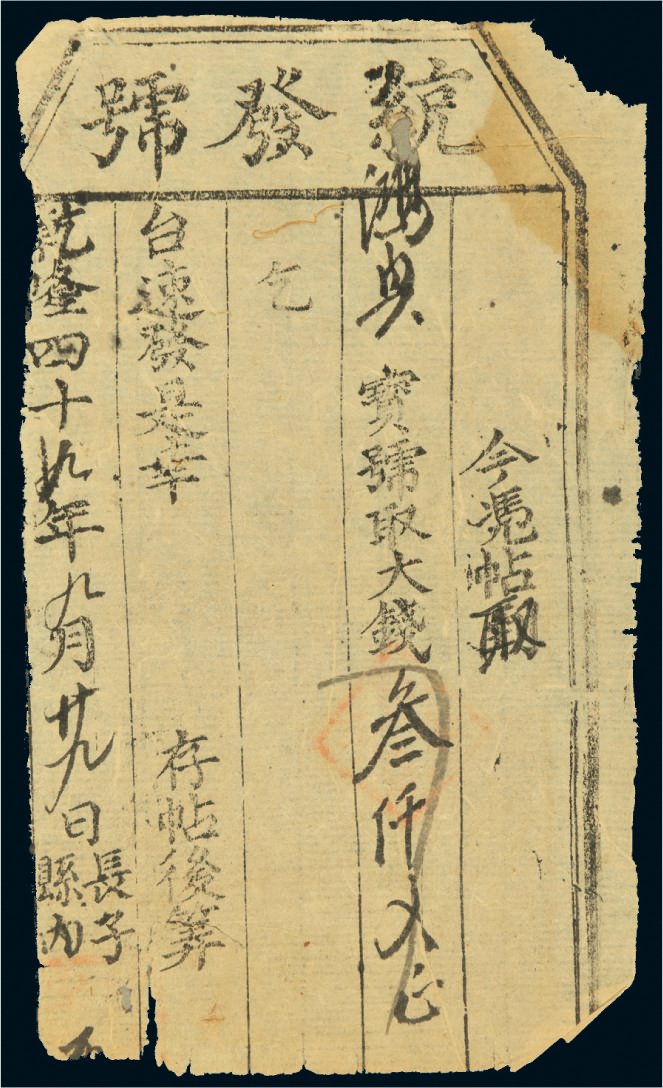 統發號
今憑帖取
鴻興 寶號取大錢叁仟文正
乞
台速發是幸 存帖後筭
乾隆四十九年九月廿九日長子
縣內